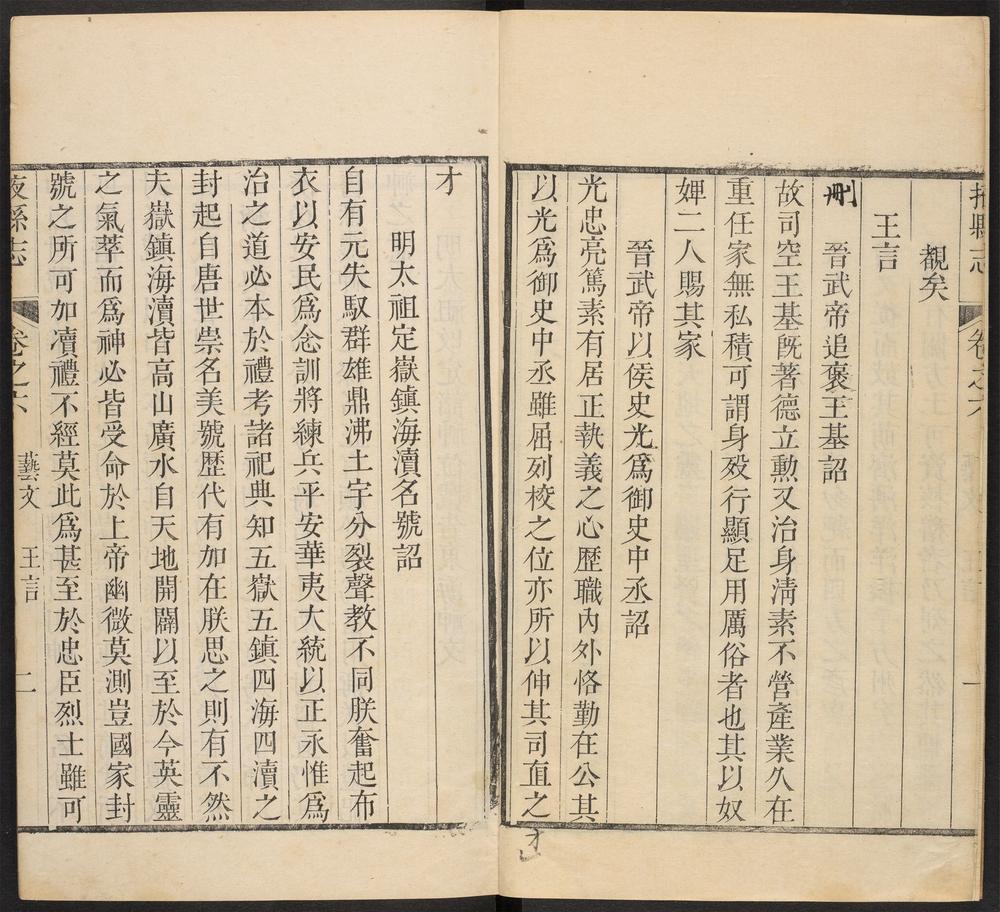 掖縣志 卷之六 一
觀矣
王言
刪 晉武帝追褒王基詔
故司空王基旣著德立勳又治身淸素不營產業久在
重任家無私積可謂身歿行顯足用厲俗者也其以奴
婢二人賜其家
晉武帝以侯史光爲御史中丞詔
光忠亮篤素有居正執義之心歷職內外恪勤在公其
以光爲御史中丞雖屈列校之位亦所以伸其司直之
才
才
明太祖定嶽鎮海瀆名號詔
自有元失馭群雄鼎沸土宇分裂聲教不同朕奮起布
衣以安民爲念訓將練兵平安華夷大統以正永惟爲
治之道必本於禮考諸祀典知五嶽五鎮四海四瀆之
封起自唐世崇名美號歷代有加在朕思之則有不然
夫嶽鎮海瀆皆高山廣水自天地開闢以至於今英靈
之氣萃而爲神必皆受命於上帝幽微莫測豈國家封
號之所可加瀆禮不經莫此爲甚至於忠臣烈士雖可
掖縣志 卷之六 藝文 王言 二